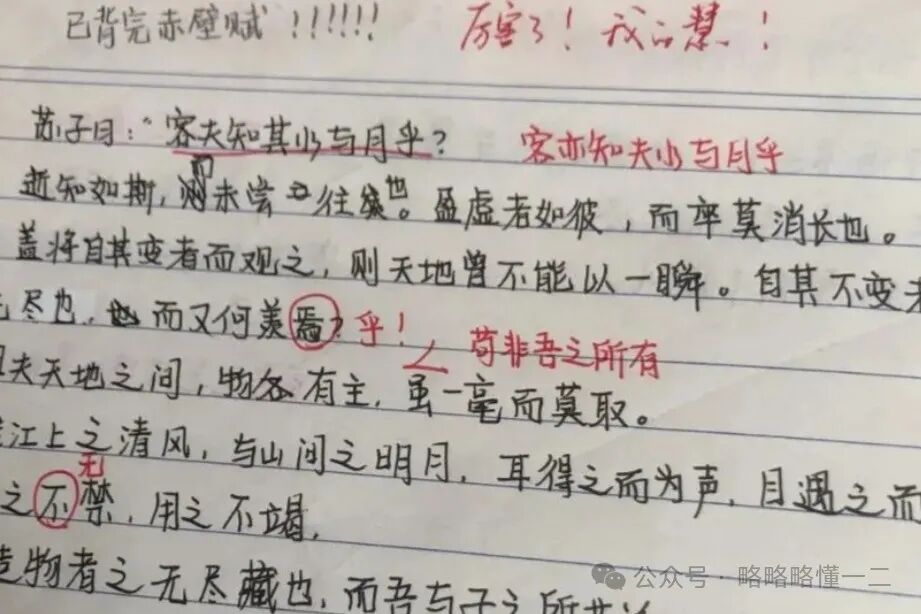 已背完赤壁赋!!!!!!
厉害了！我的慧！
苏子曰：“客夫知其水与月乎？
客亦知夫水与月乎
而
逝知如斯，未尝往也。盈虚者如彼，而卒莫消长也。
盖将自其变者而观之，则天地曾不能以一瞬。自其不变
尽也，而又何羡焉？乎！
苟非吾之所有
夫天地之间，物各有主，虽一毫而莫取。
江上之清风，与山间之明月，耳得之而为声，目遇之而
无
之不禁，用之不竭，
造物者之无尽藏也，而吾与子之所共
公众号·略略略懂一二